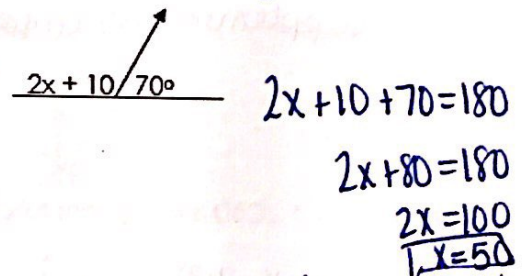 2x + 10 70°
2x+10+70=180
2x+80=180
2x=100
x=50